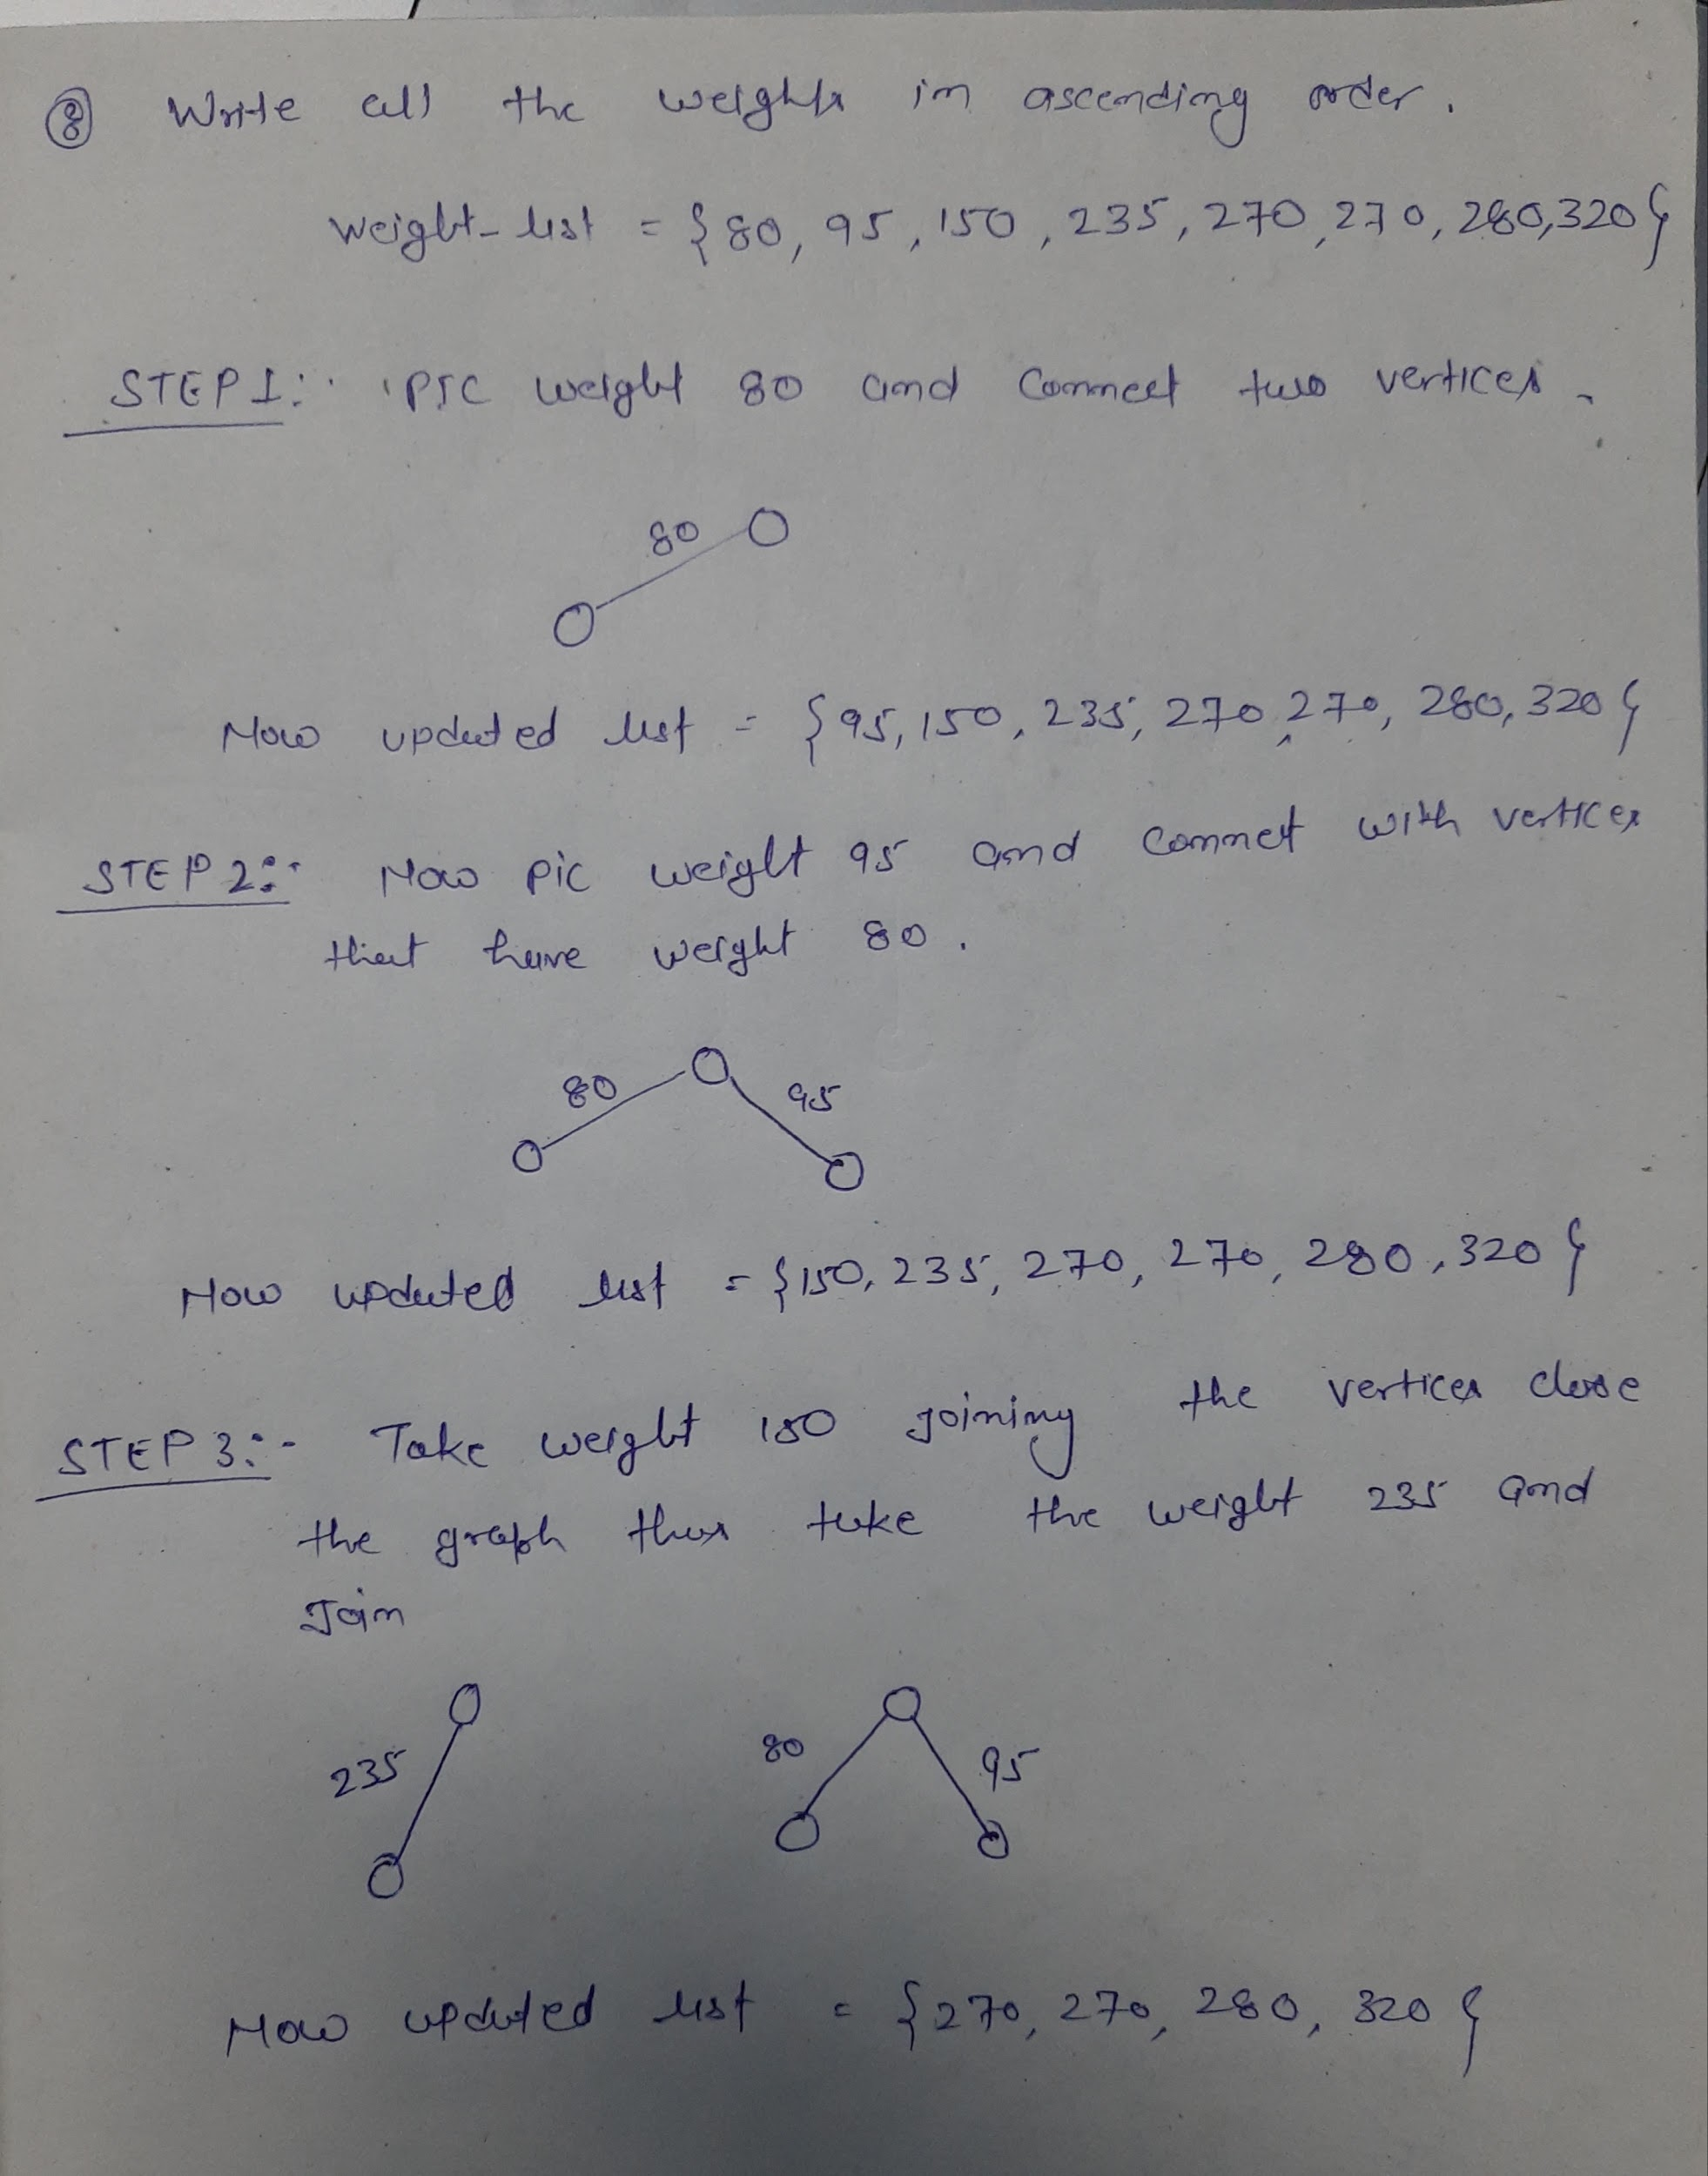 ⑧ Write all the weights in ascending order.
weight-list = {80, 95, 150, 235, 270, 270, 280, 320}
STEP 1:- PIC weight 80 and connect two vertices.
80
Now updated list = {95, 150, 235, 270, 270, 280, 320}
STEP 2:- Now pic weight 95 and connect with vertices
that have weight 80.
80 95
Now updated list = {150, 235, 270, 270, 280, 320}
STEP 3:- Take weight 150 joining the vertices close
the graph thus take the weight 235 and
Join
235 80 95
Now updated list = {270, 270, 280, 320}